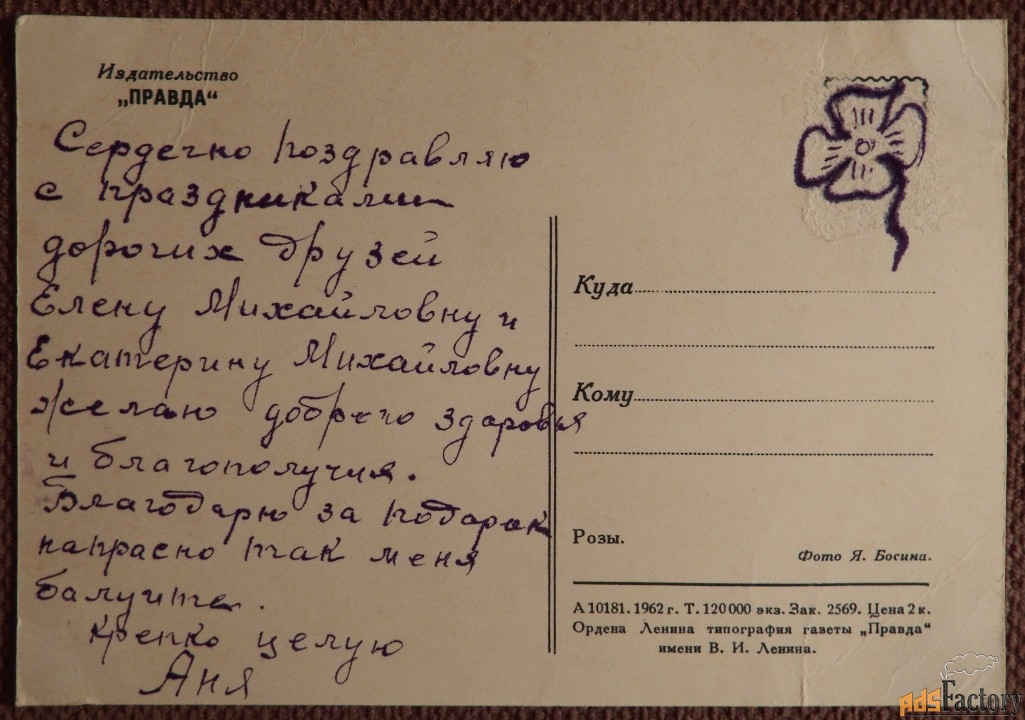 Издательство
„ПРАВДА“
Сердечно поздравляю
с праздниками
дорогих друзей
Елену Михайловну и
Екатерину Михайловну
Желаю доброго здоровья
и благополучия.
Благодарю за подарок
напрасно так меня
балуите.
Крепко целую
Аня
Куда
Кому
Розы.
Фото Я. Босина.
А 10181. 1962 г. Т. 120 000 экз. Зак. 2569. Цена 2 к.
Ордена Ленина типография газеты „Правда“
имени В. И. Ленина.
AdsFactory